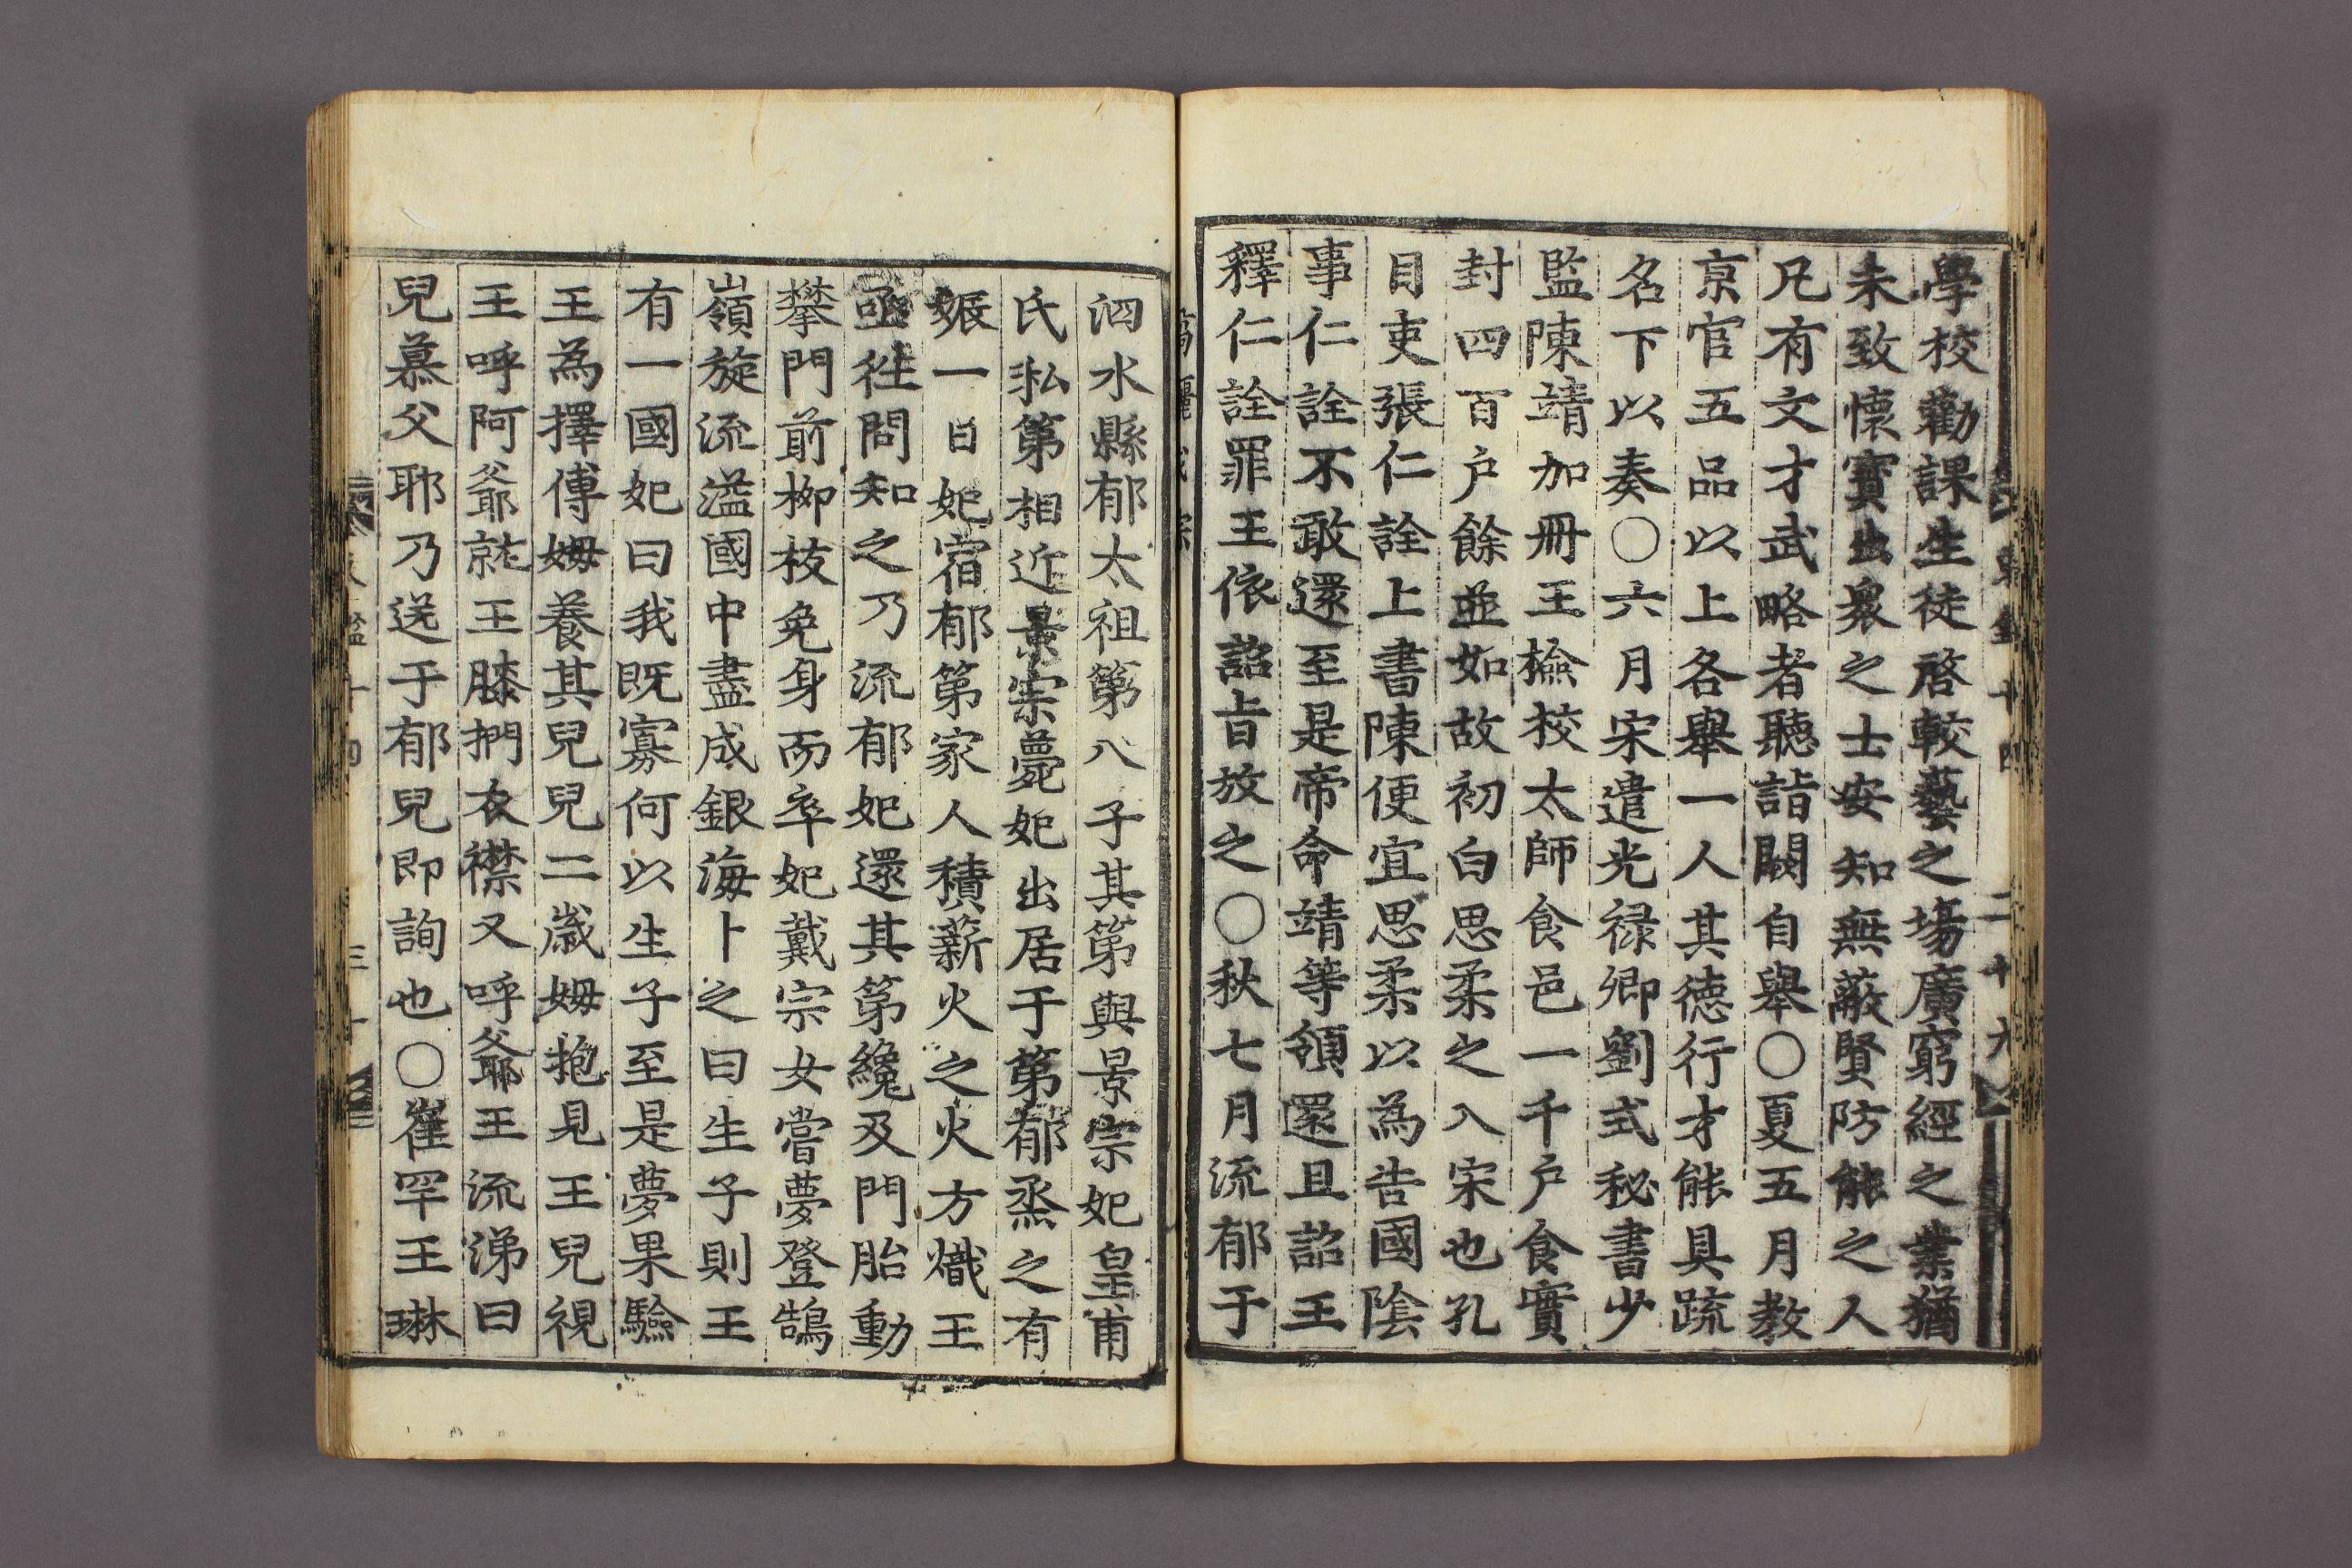 學校勸課生徒啓較藝之場廣窮經之業猶
未致懷寶出衆之士安知無蔽賢防能之人
凡有文才武略者聽詣闕自舉○夏五月教
京官五品以上各舉一人其德行才能具疏
名下以奏○六月宋遣光祿卿劉式秘書少
監陳靖加冊王檢校太師食邑一千戶食實
封四百戶餘並如故初白思柔之入宋也孔
目吏張仁詮上書陳便宜思柔以爲告國陰
事仁詮不敢還至是帝命靖等領還且詔王
釋仁詮罪王依詔旨放之○秋七月流郁于
泗水縣郁太祖第八子其第與景宗妃皇甫
氏私第相近景宗薨妃出居于第郁烝之有
娠一日妃宿郁第家人積薪火之火方熾王
亟徃問知之乃流郁妃還其第纔及門胎動
攀門前柳枝免身而卒妃戴宗女嘗夢登鵠
嶺旋流溢國中盡成銀海卜之曰生子則王
有一國妃曰我既寡何以生子至是夢果驗
王爲擇傅姆養其兒兒二歲姆抱見王兒視
王呼阿爺就王膝捫衣襟又呼爺王流涕曰
兒慕父耶乃送于郁兒即詢也○崔罕王琳